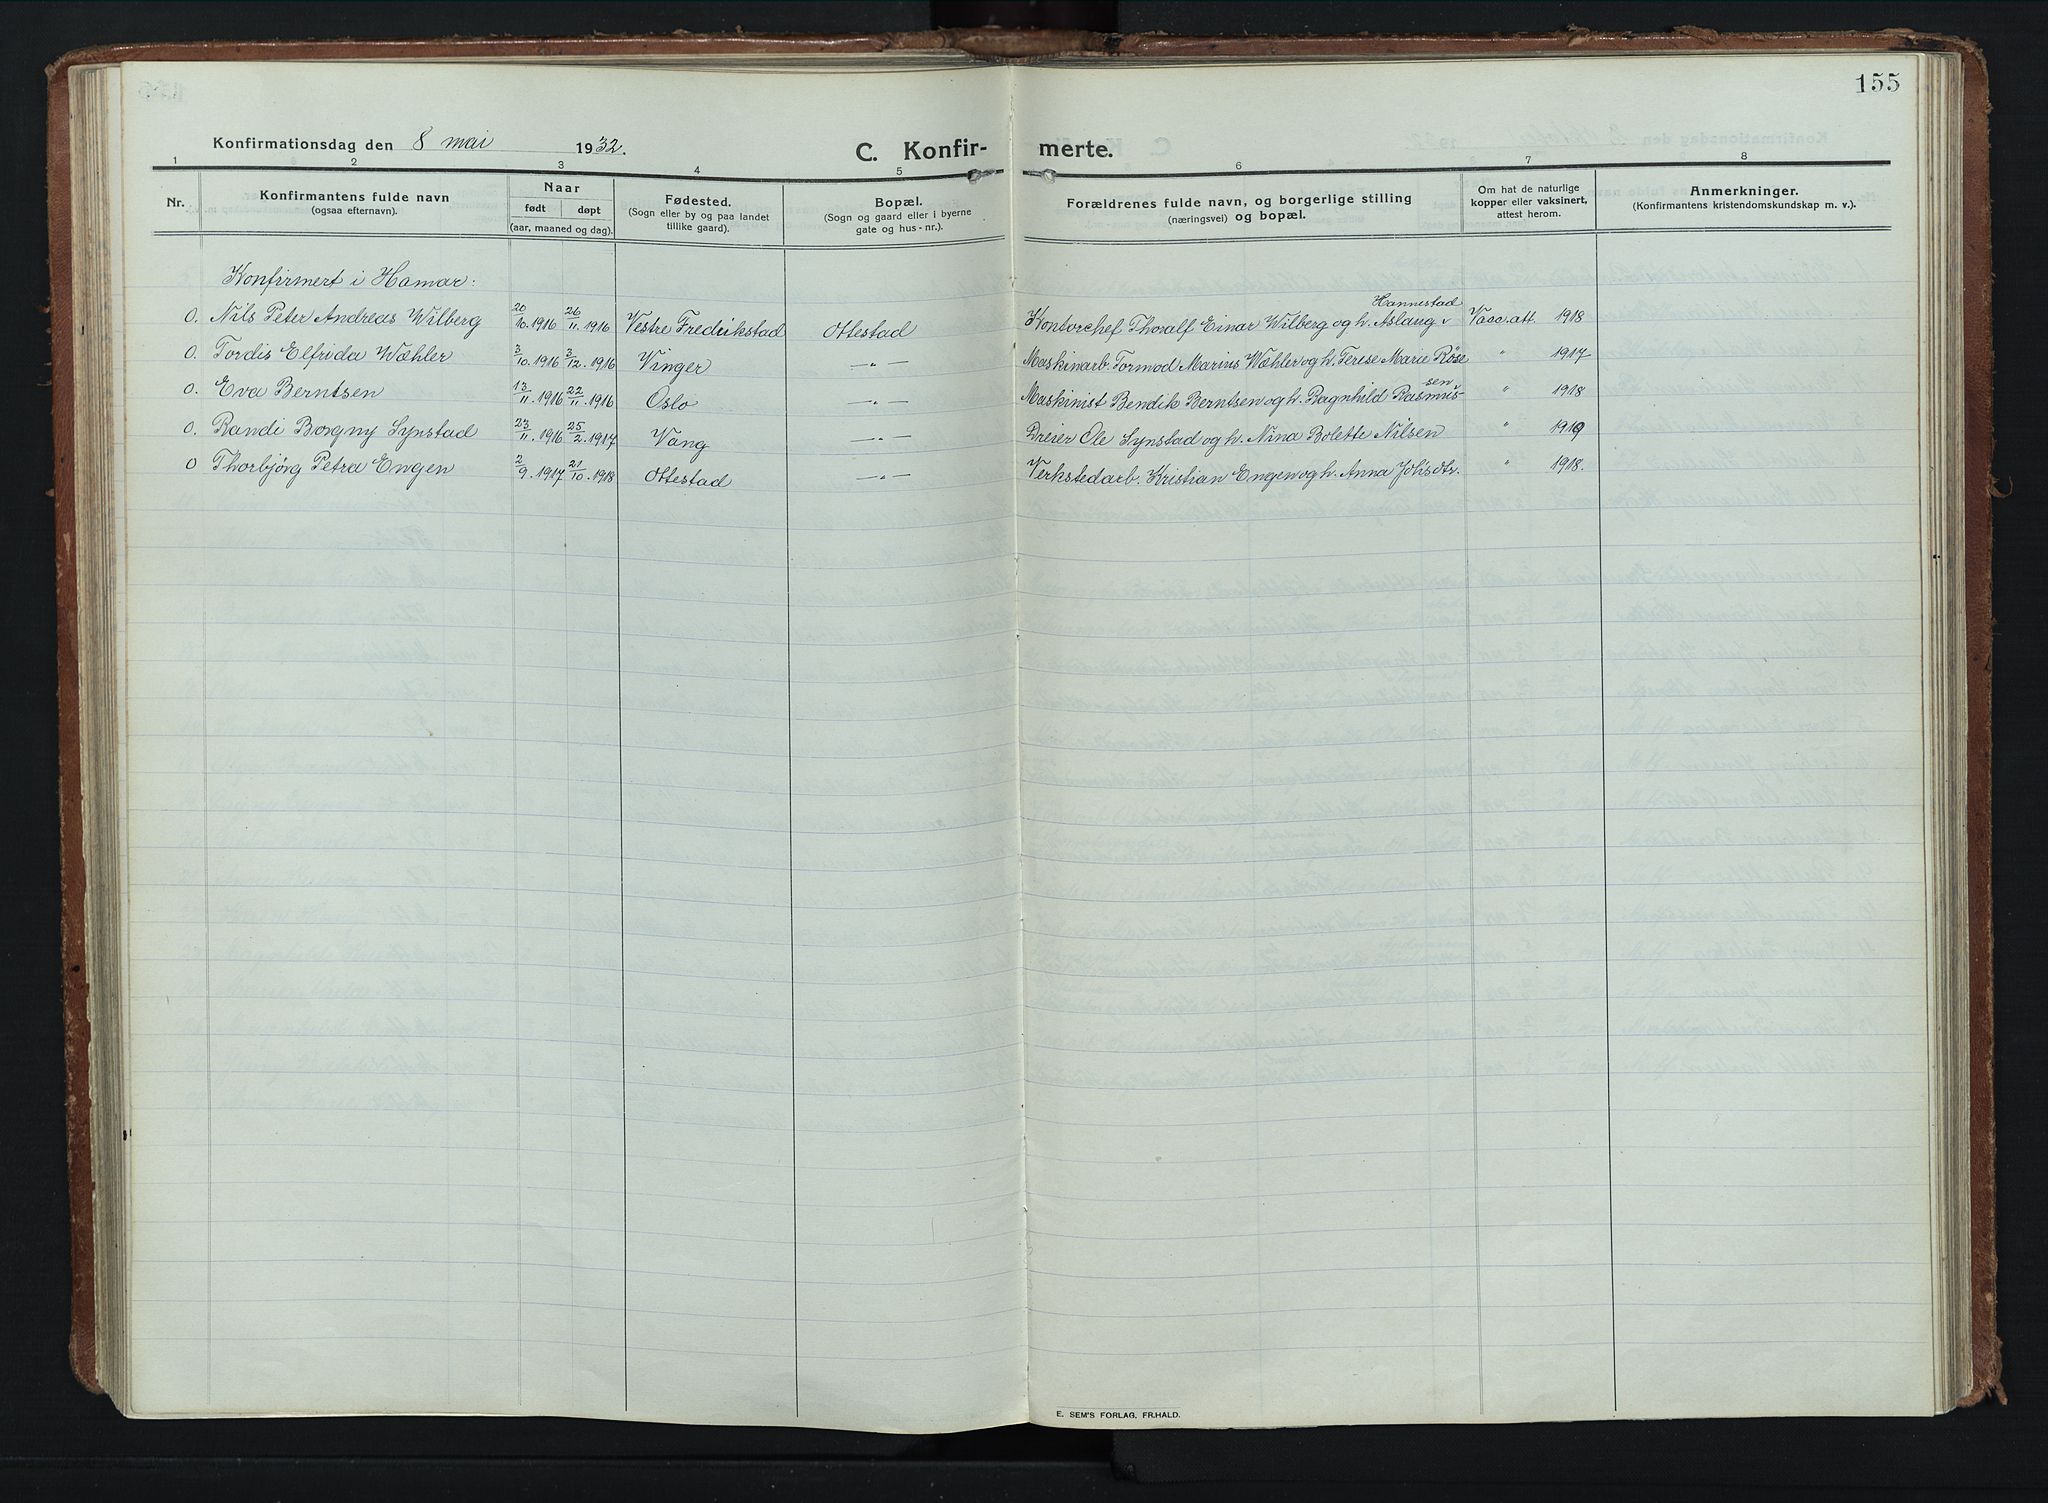 155
Konfirmationsdag den 8 mai 1932.
C. Konfir- merte.
1 2 3 4 5 6 7 8
Nr. Konfirmantens fulde navn (ogsaa efternavn). Naar født døpt (aar, maaned og dag). Fødested. (Sogn eller by og paa landet tillike gaard). Bopæl. (Sogn og gaard eller i byerne gate og hus-nr.). Forældrenes fulde navn, og borgerlige stilling (næringsvei) og bopæl. Om hat de naturlige kopper eller vaksinert, attest herom. Anmerkninger. (Konfirmantens kristendomskundskap m. v.).
Konfirmert i Hamar:
0. Nils Peter Andreas Wilberg 20/10.1916 26/11.1916 Vestre Fredrikstad Ottestad Kontorchef Thoralf Einar Wilberg og h. Aslaug Hannestad Vacc.att. 1918
0. Tordis Elfrida Wæhler 3/10.1916 3/12.1916 Vinger —„— Maskinarb. Tormod Marius Wæhler og h. Terese Marie Røse " 1917
0. Eva Berntsen 13/11.1916 22/11.1916 Oslo —„— Maskinist Bendik Berntsen og h. Ragnhild Rasmussen " 1918
0. Randi Borgny Synstad 23/11.1916 25/2.1917 Vang —„— Dreier Ole Synstad og h. Nina Bolette Nilsen " 1919
0 Thorbjørg Petra Engen 2/9.1917 21/10.1918 Ottestad —„— Verkstedarb. Kristian Engen og h. Anna Johsdtr. " 1918.
E. SEM'S FORLAG, FR.HALD.